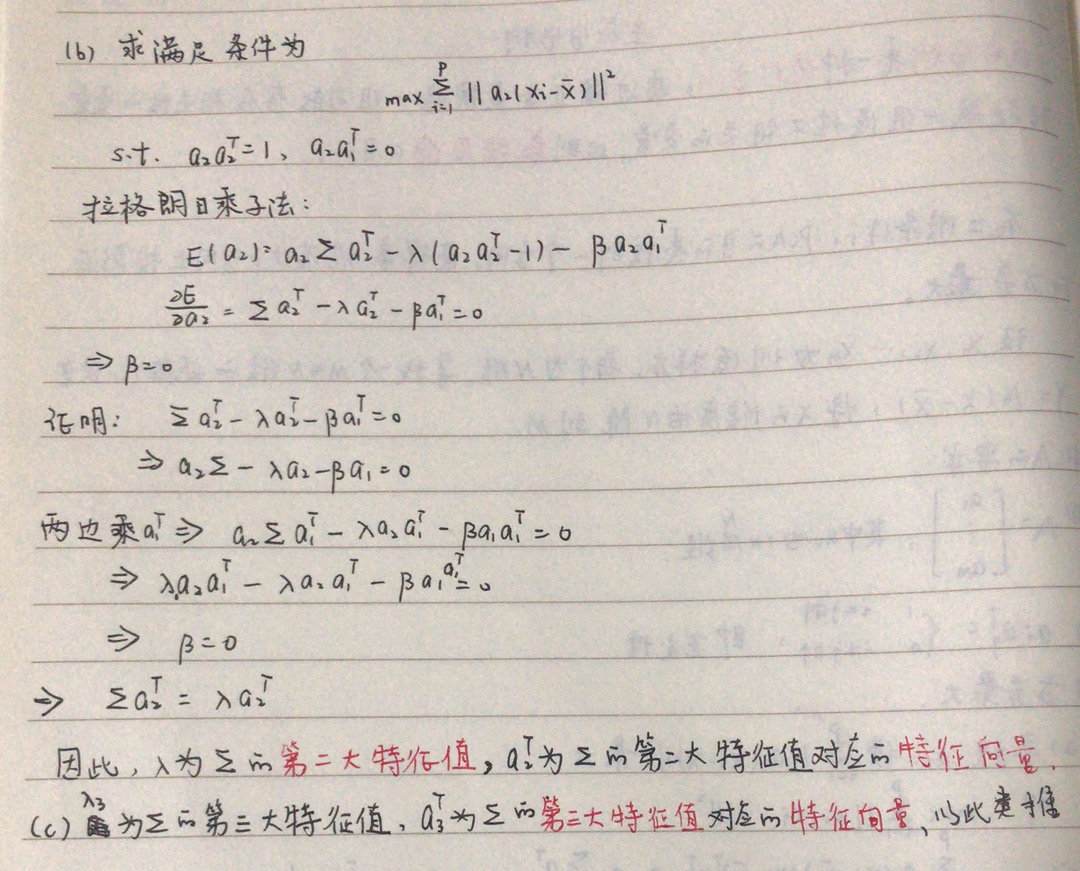 (b) 求满足条件为
max Σ_{i=1}^{P} ||a₂(xᵢ-x̄)||²
s.t. a₂a₂ᵀ=1、a₂a₁ᵀ=0
拉格朗日乘子法:
E(a₂)=a₂Σa₂ᵀ-λ(a₂a₂ᵀ-1)-βa₂a₁ᵀ
∂E/∂a₂=Σa₂ᵀ-λa₂ᵀ-βa₁ᵀ=0
⇒β=0
证明: Σa₂ᵀ-λa₂ᵀ-βa₁ᵀ=0
⇒a₂Σ-λa₂-βa₁=0
两边乘a₁ᵀ⇒ a₂Σa₁ᵀ-λa₂a₁ᵀ-βa₁a₁ᵀ=0
⇒λ₁a₂a₁ᵀ-λa₂a₁ᵀ-βa₁a₁ᵀ=0
⇒ β=0
⇒ Σa₂ᵀ=λa₂ᵀ
因此,λ为Σ的第二大特征值,a₂ᵀ为Σ的第二大特征值对应的特征向量.
(c) λ₃为Σ的第三大特征值、a₃ᵀ为Σ的第三大特征值对应的特征向量,以此类推